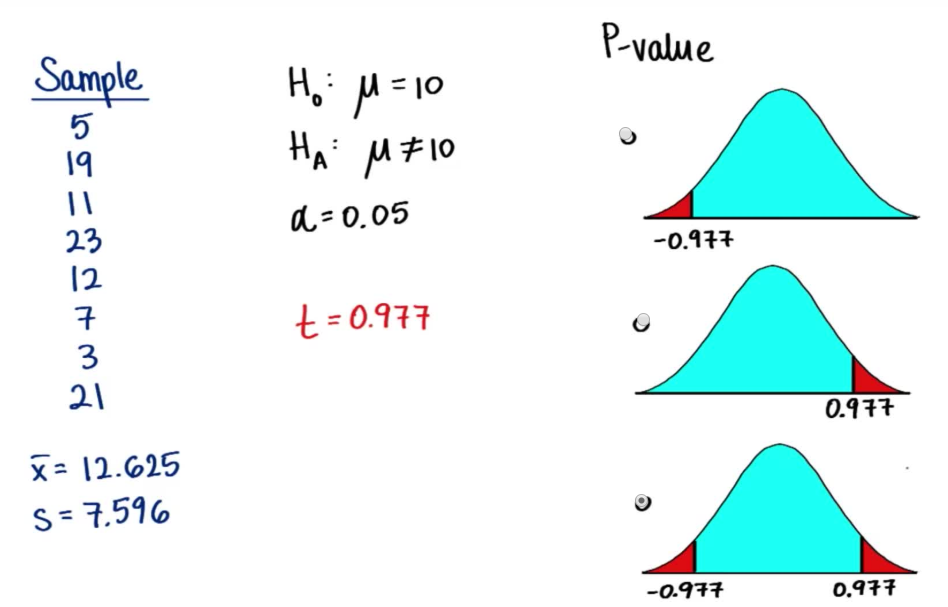 Sample
5
19
11
23
12
7
3
21
x̄ = 12.625
S = 7.596
H₀: μ = 10
H_A: μ ≠ 10
α = 0.05
t = 0.977
P-value
-0.977
0.977
-0.977 0.977